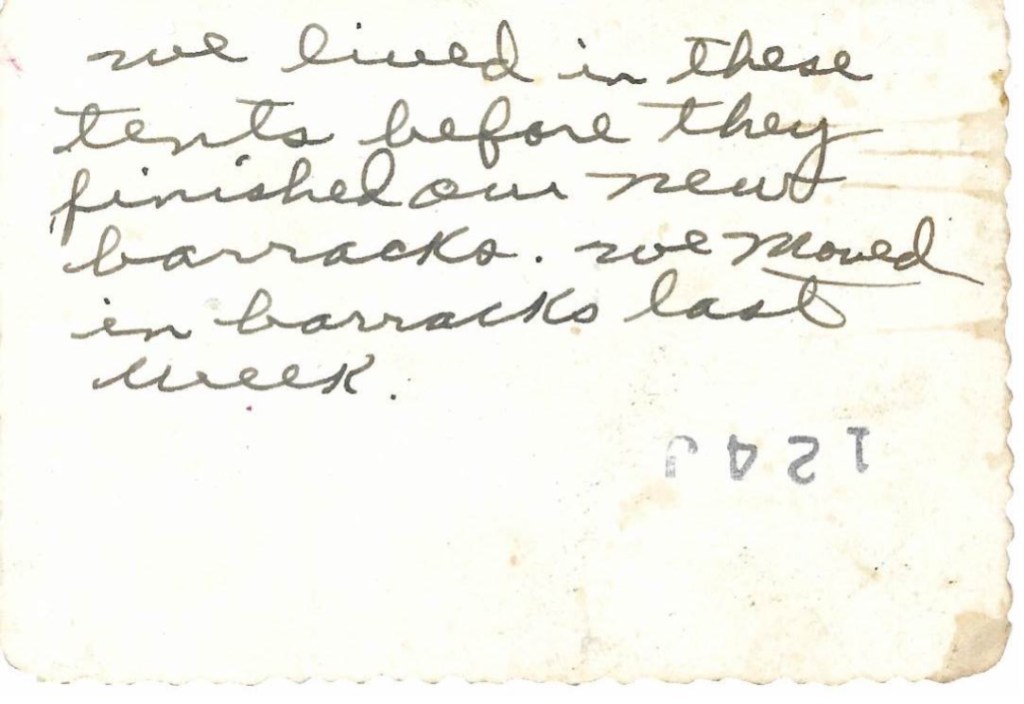 we lived in these
tents before they
finished our new
barracks. we moved
in barracks last
week.